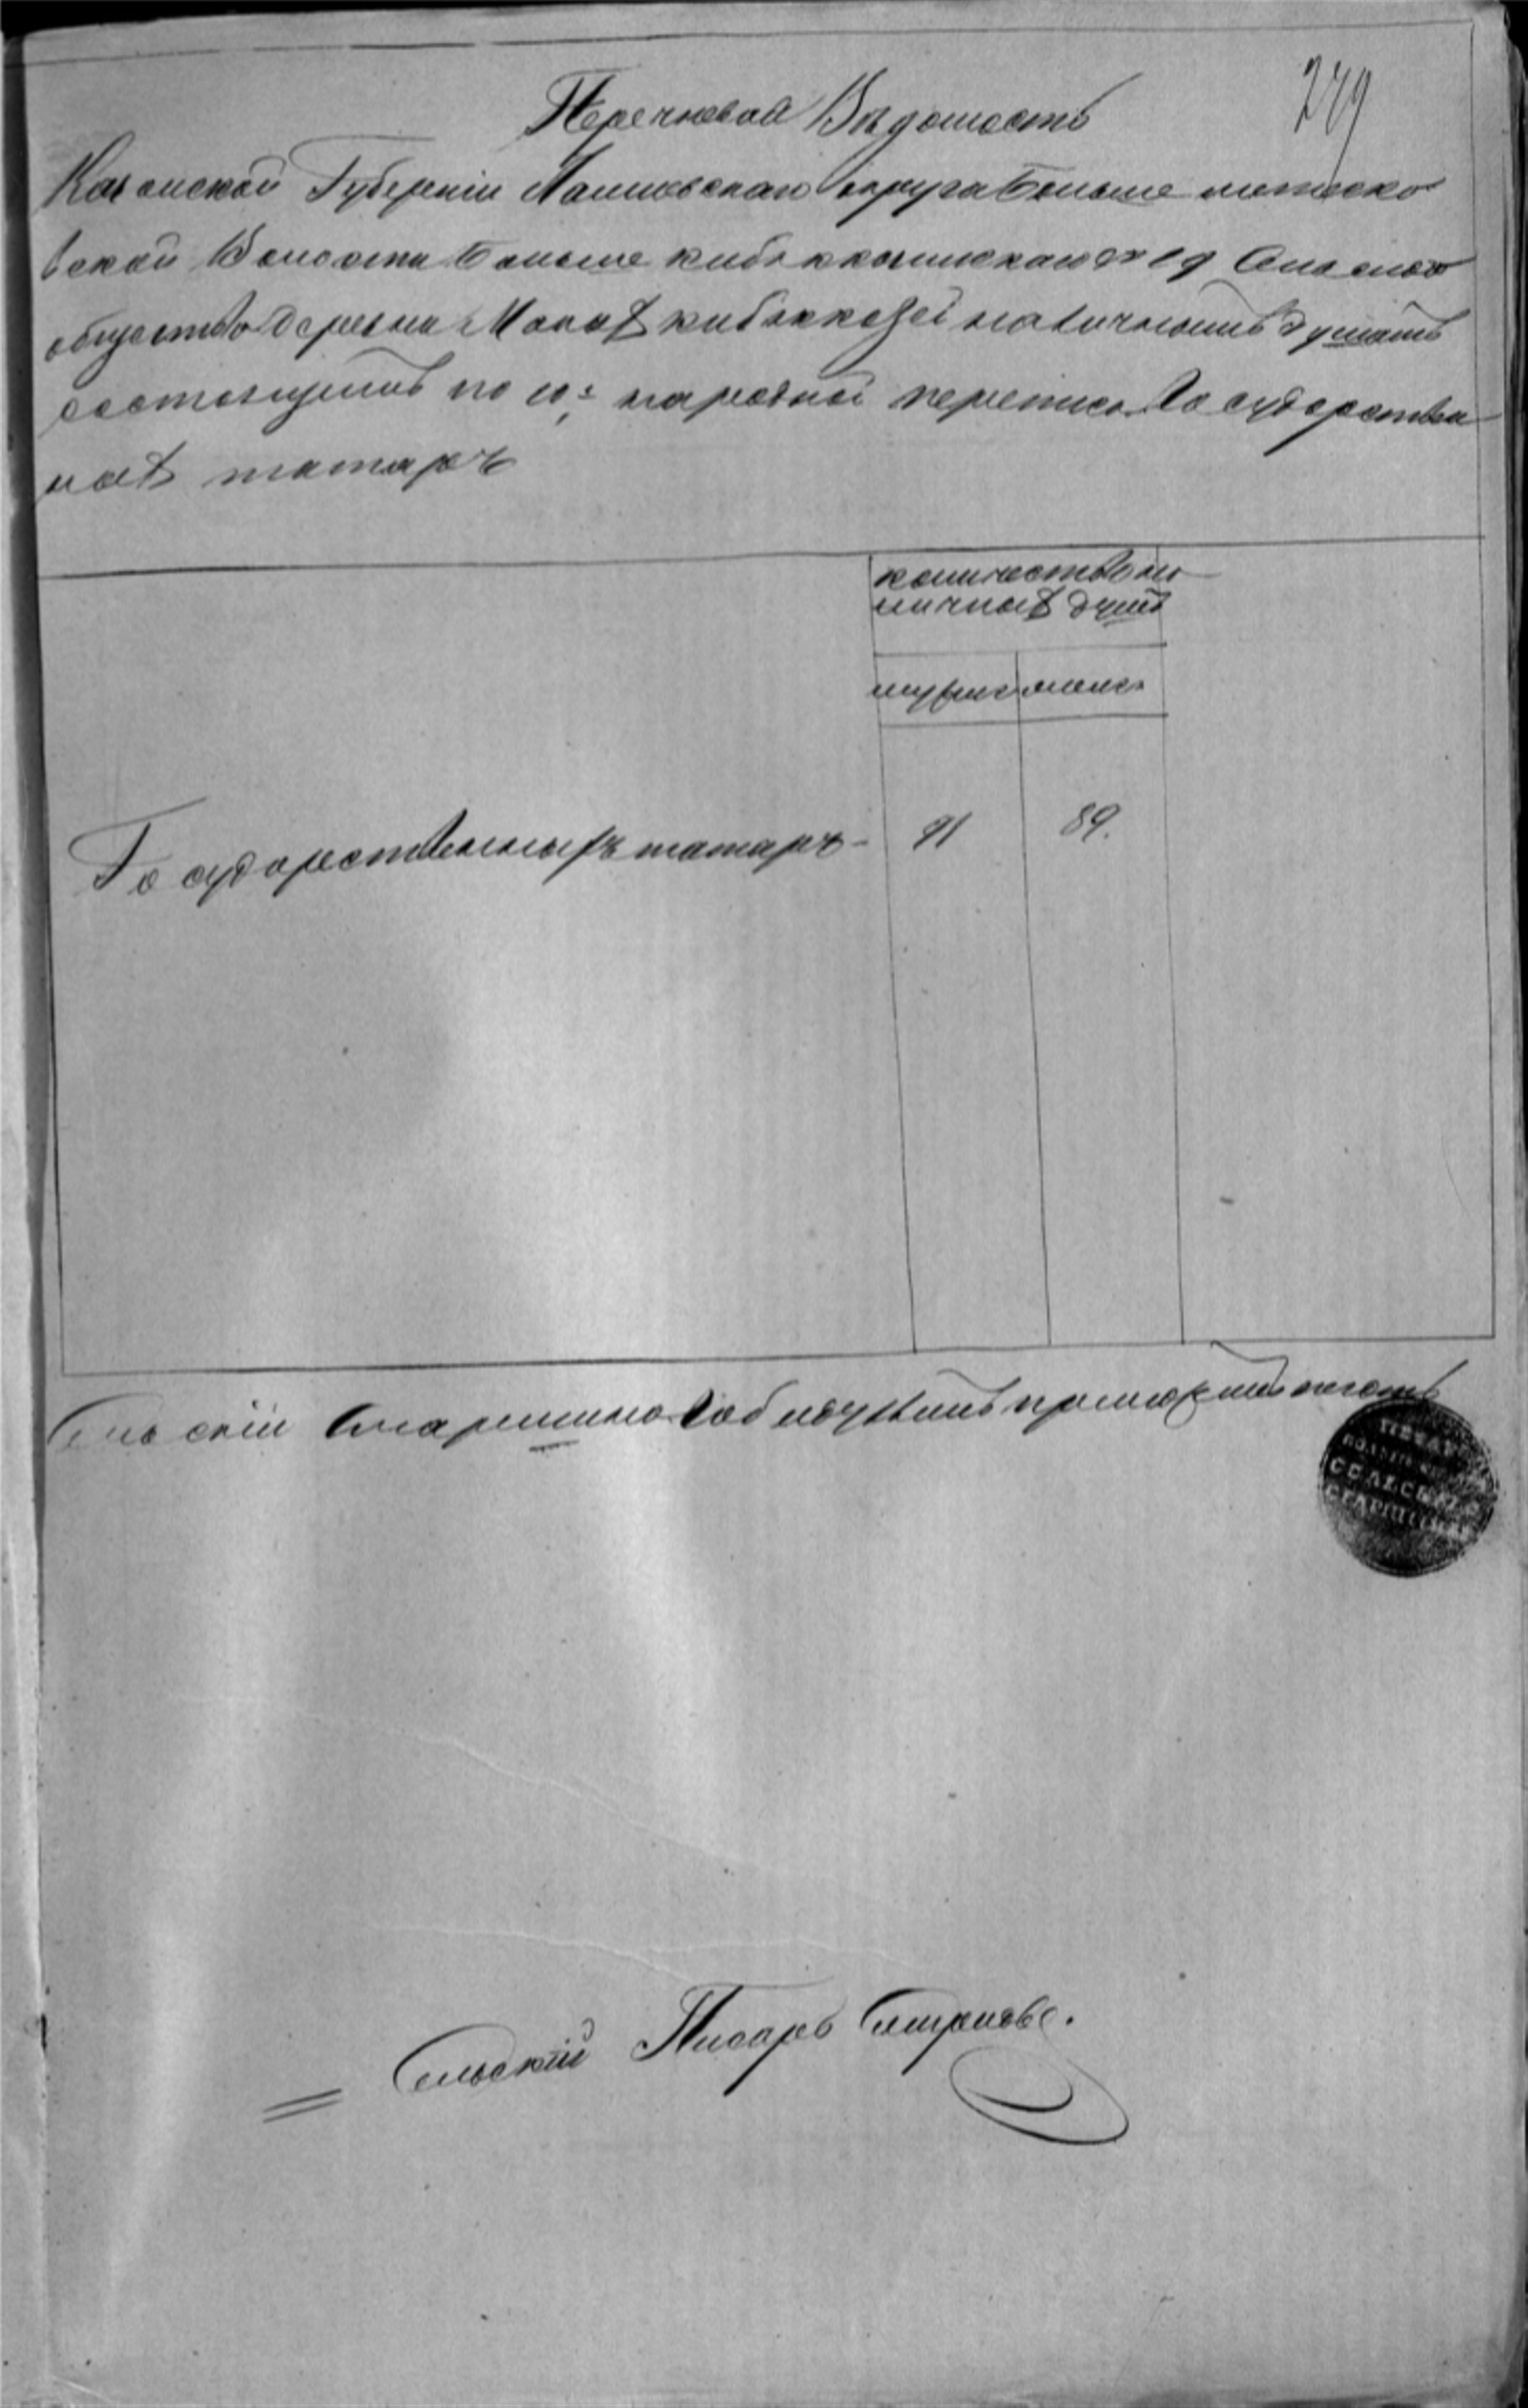 249
Перечневая Ведомость
Казанской Губернии Лаишевскаго округа Больше меteско
вской Волости Больше кибяккозинскаго Сельскаго
общество деревни Малых кибяккозей наличнымъ душамъ
состоящимъ по 10й народной переписи Государствен
ныхъ татаръ
количество на
личныхъ душъ
мужеска женска
Государственныхъ татаръ - 91 89.
Сельскій Старшина приложилъ печать
ПЕЧАТЬ
СЕЛЬСКАГО
СТАРШИНЫ
= Сельскій Писарь